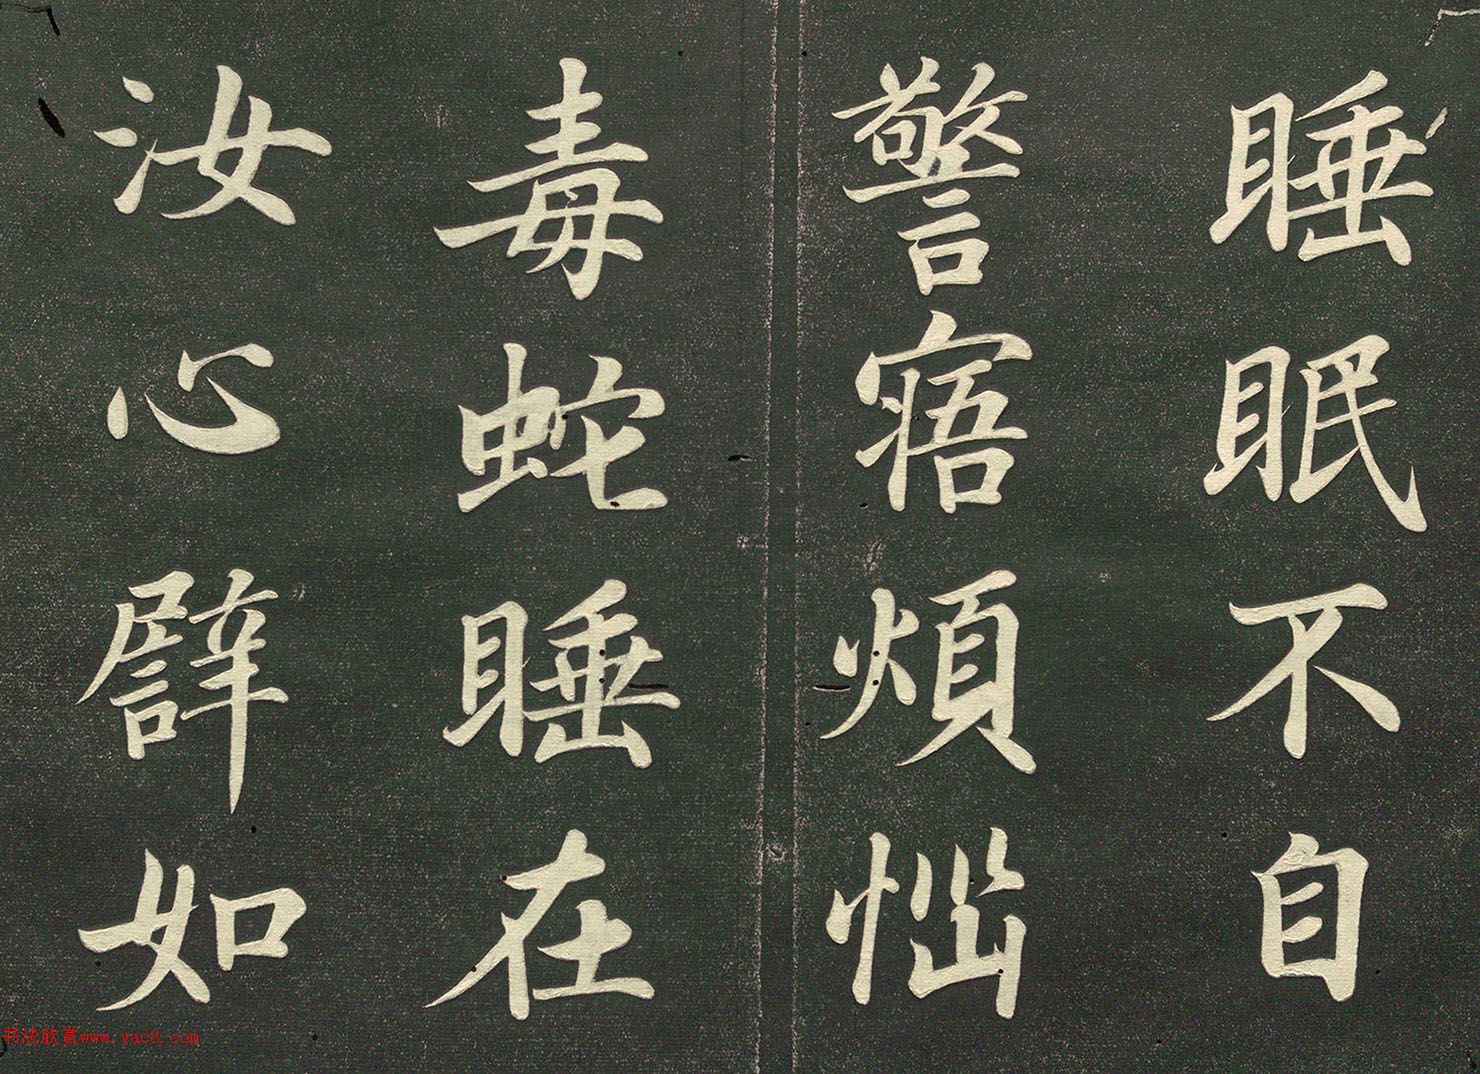 睡眠不自
警寤煩惱
毒蛇睡在
汝心譬如
书法欣赏www.yac8.com